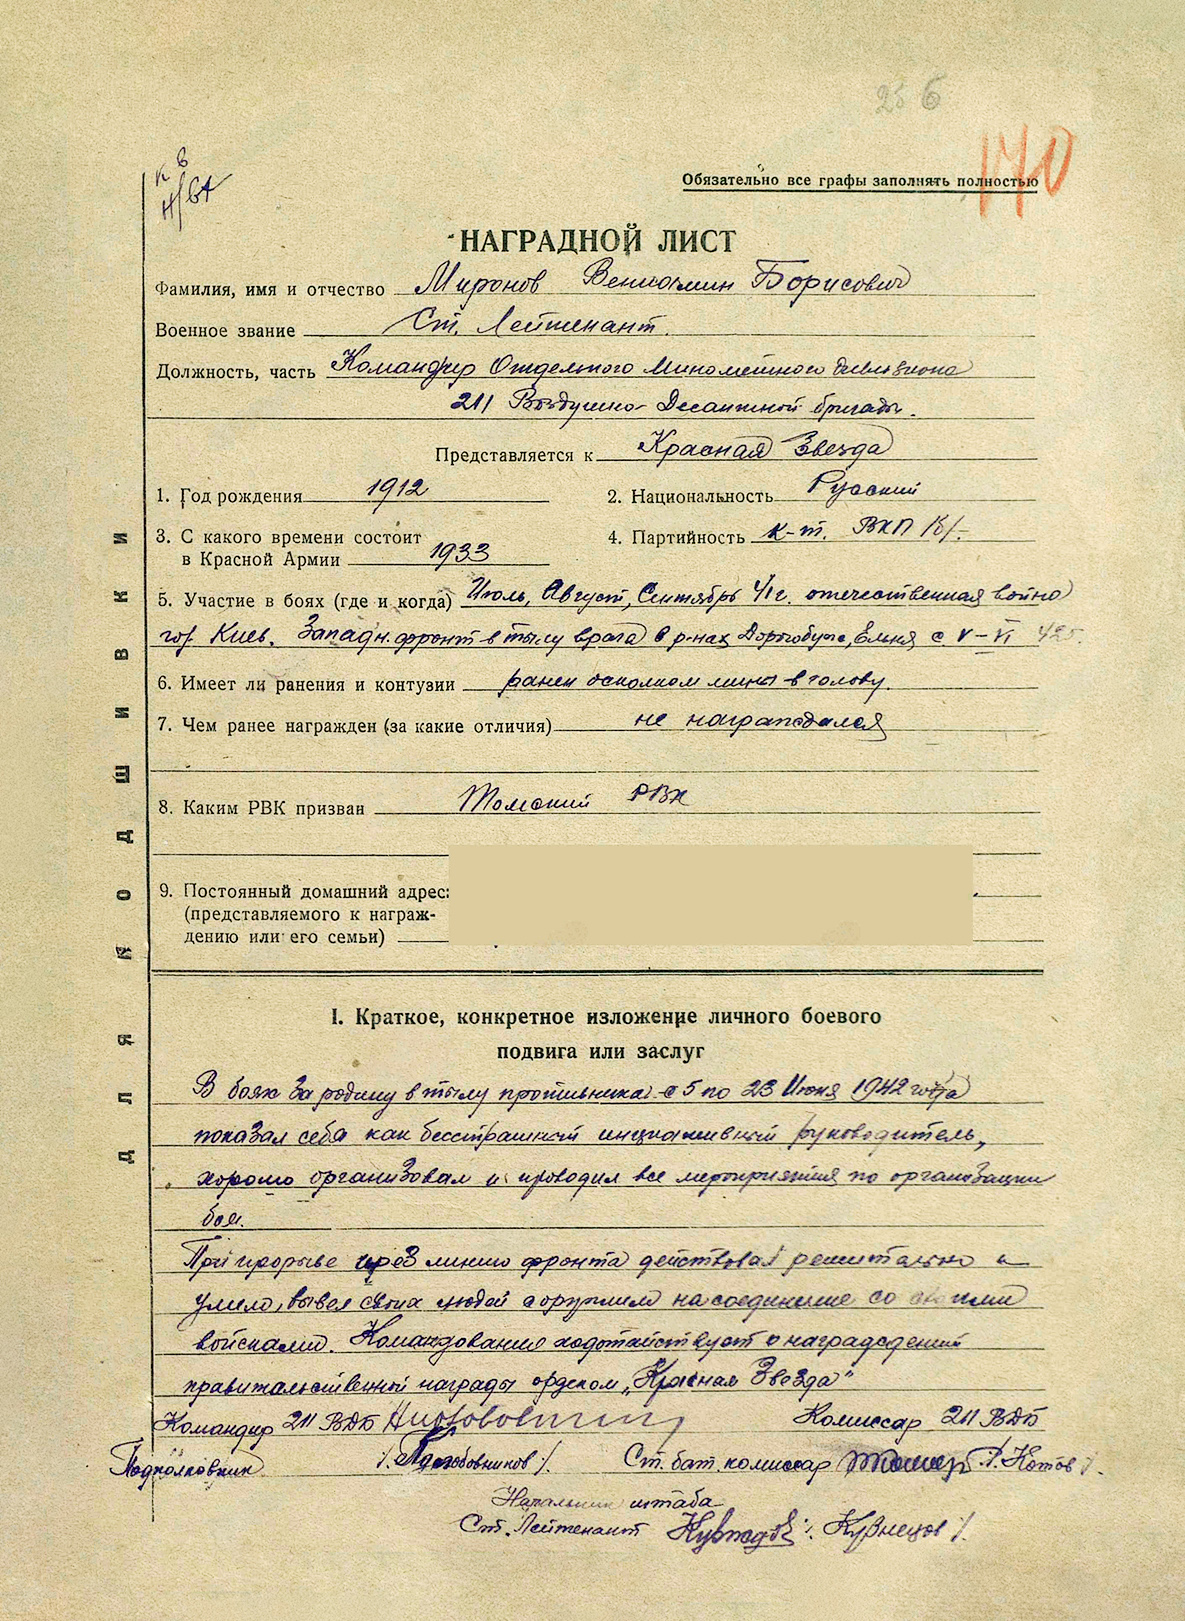 25 6
170
Обязательно все графы заполнять полностью
НАГРАДНОЙ ЛИСТ
Фамилия, имя и отчество Миронов Вениамин Борисович
Военное звание Ст. Лейтенант.
Должность, часть Командир Отдельного Минометного дивизиона
211 Воздушно-Десантной бригады.
Представляется к Красная Звезда
1. Год рождения 1912
2. Национальность Русский
3. С какого времени состоит
в Красной Армии 1933
4. Партийность к-т. ВКП/б/.
5. Участие в боях (где и когда) Июль, Август, Сентябрь 41г. отечественная война
гор. Киев. Западн. фронт в тылу врага в р-нах Дорогобуж, Ельня с V-VI 42г.
6. Имеет ли ранения и контузии ранен осколком мины в голову.
7. Чем ранее награжден (за какие отличия) не награждался
8. Каким РВК призван Томский РВК
9. Постоянный домашний адрес:
(представляемого к награж-
дению или его семьи)
ДЛЯ ПОДШИВКИ
I. Краткое, конкретное изложение личного боевого
подвига или заслуг
В боях за родину в тылу противника с 5 по 23 Июня 1942 года
показал себя как бесстрашный инициативный руководитель,
хорошо организовал и проводил все мероприятия по организации
боя.
При прорыве через линию фронта действовал решительно и
умело, вывел своих людей с оружием на соединение со своими
войсками. Командование ходатайствует о награждении
правительственной награды орденом „Красная Звезда"
Командир 211 ВДБ
Комиссар 211 ВДБ
Подполковник
Ст. бат. комиссар /. Котов /.
Начальник штаба
Ст. Лейтенант /. Кузнецов /.